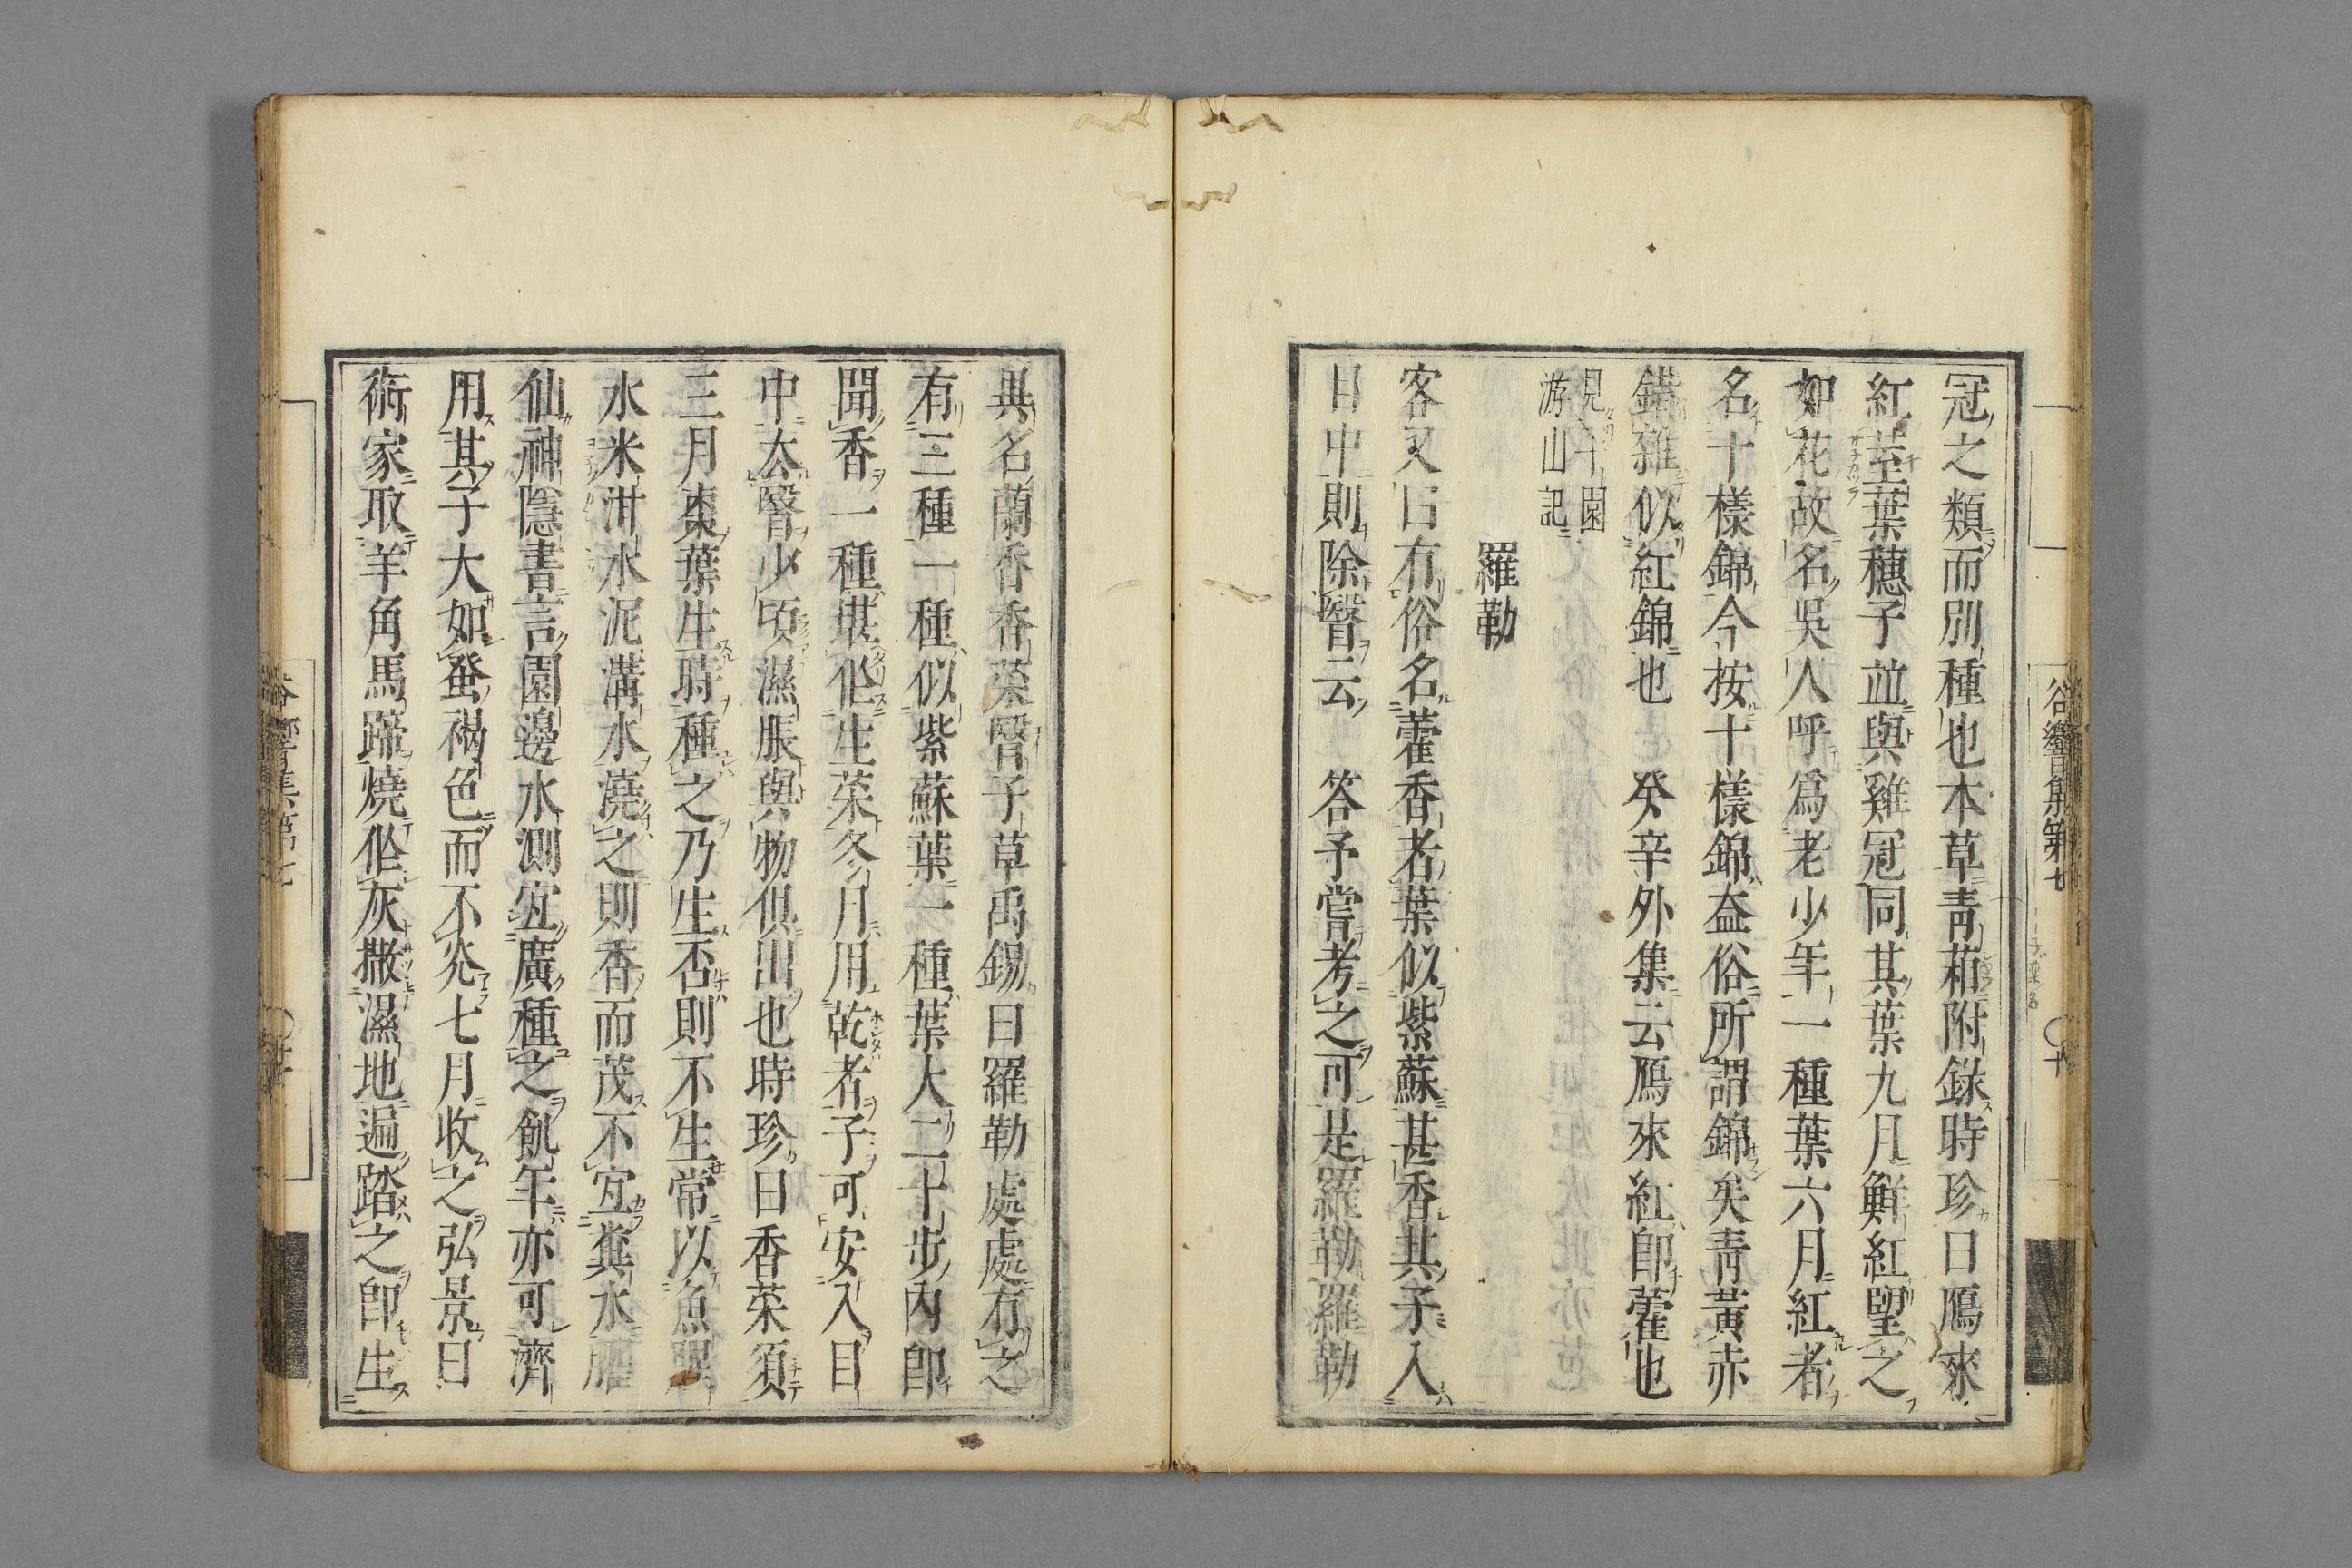 冠之類而別種也本草青葙附錄時珍曰鴈來
紅莖葉穗子並與雞冠同其葉九月鮮紅望之
如花故名吳人呼爲老少年一種葉六月紅者
名十樣錦今按十樣錦益俗所謂錦矣青黃赤
錯雜似紅錦也 癸辛外集云鴈來紅卽藿也
見千園
游山記
羅勒
客又曰有俗名藿香者葉似紫蘇甚香其子入
目中則除瞖云 答予嘗考之可是羅勒羅勒
異名蘭香香菜瞖子草禹錫曰羅勒處處有之
有三種一種似紫蘇葉一種葉大二十步內卽
聞香一種堪作生菜冬月用乾者子可安入目
中去瞖少頃濕脹與物俱出也時珍曰香菜須
三月棗葉生時種之乃生否則不生常以魚腥
水米泔水泥溝水澆之則香而茂不宜糞水臞
仙神隱書言園邊水側宜廣種之飢年亦可濟
用其子大如蚤褐色而不光七月收之弘景曰
術家取羊角馬蹄燒作灰撒濕地遍踏之卽生
谷響集第七
〇十
谷響集第七